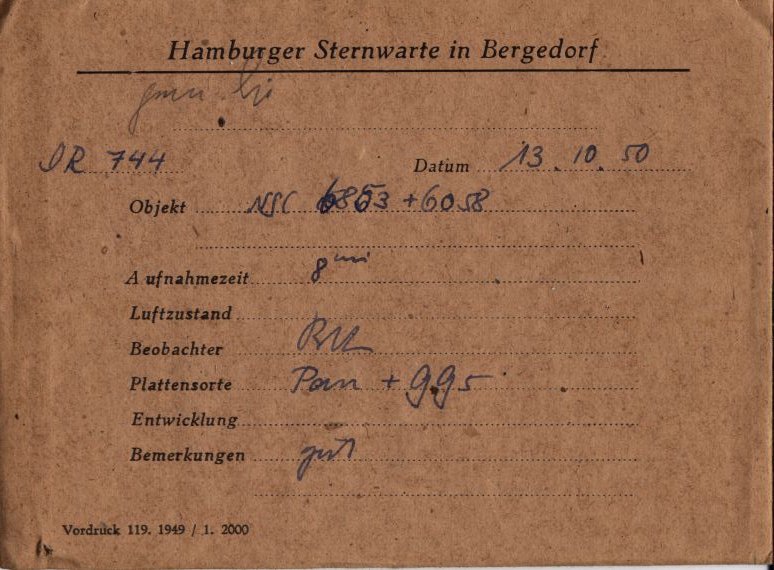 Hamburger Sternwarte in Bergedorf
DR 744 Datum 13. 10. 50
Objekt NGC 6853 + 6058
Aufnahmezeit 8 min
Luftzustand
Beobachter
Plattensorte Pan + 995
Entwicklung
Bemerkungen gut
Vordruck 119. 1949 / 1. 2000